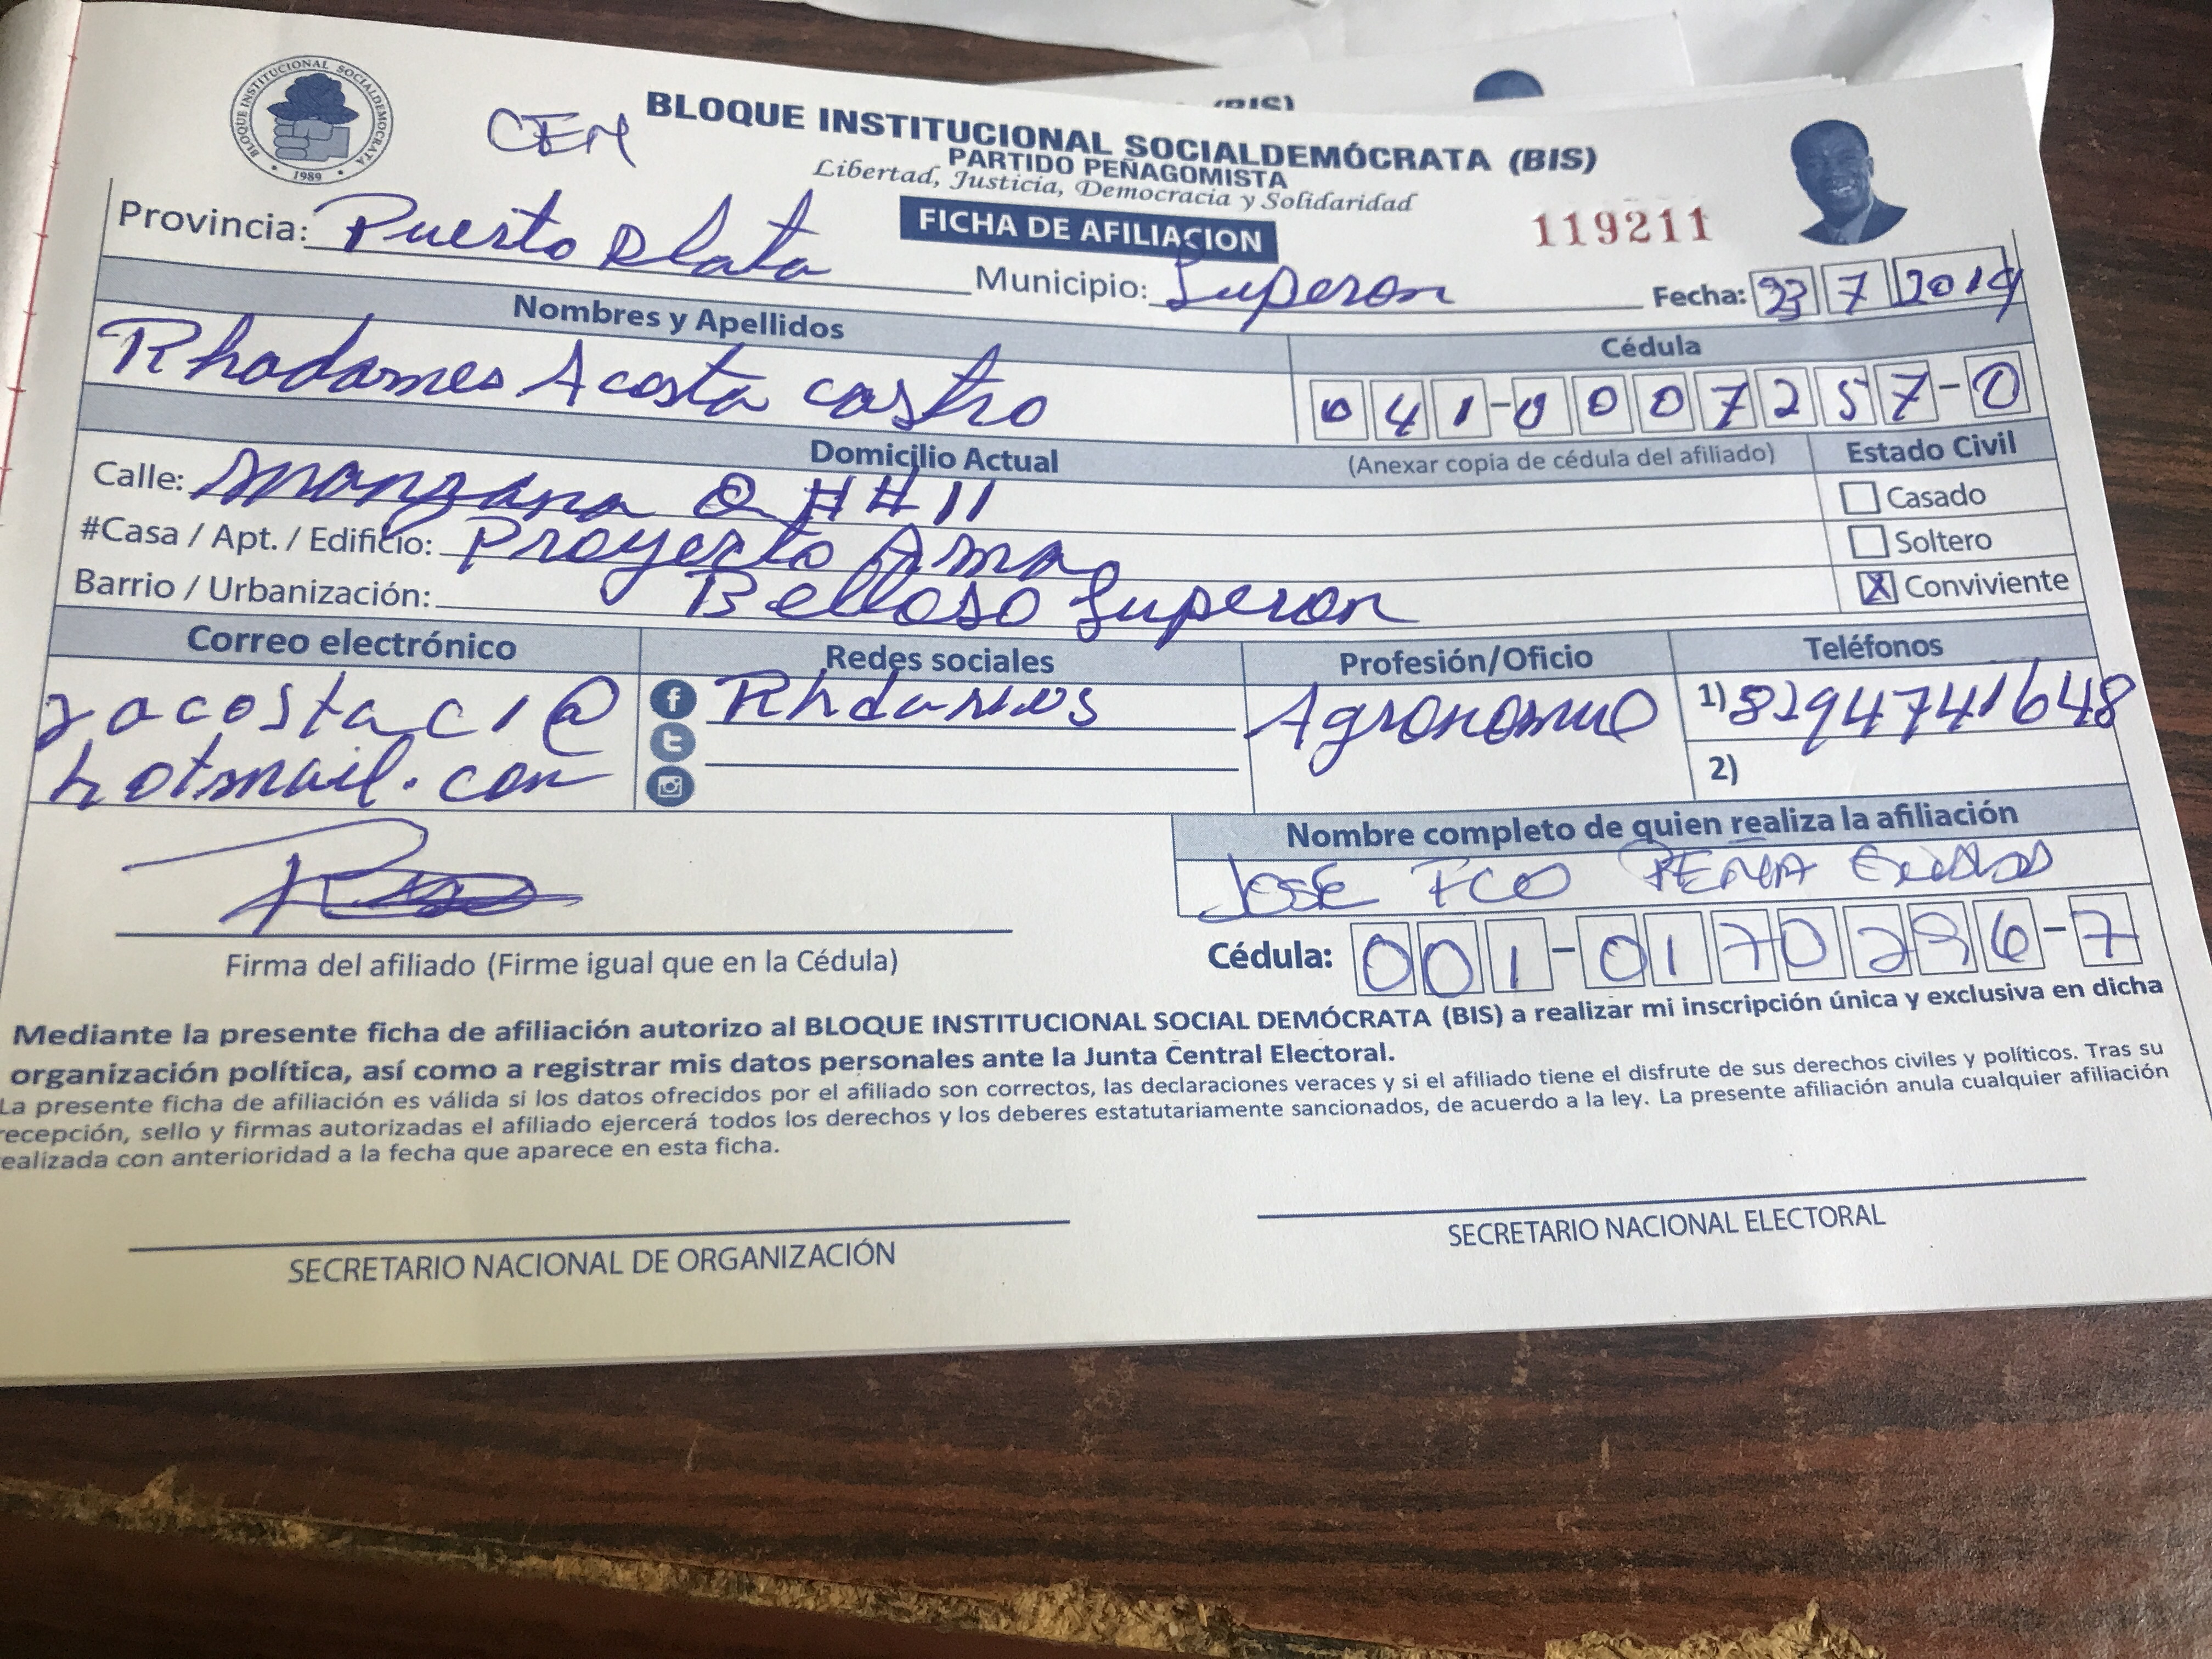 BLOQUE INSTITUCIONAL SOCIALDEMOCRATA
1989
(BIS)
CEN
BLOQUE INSTITUCIONAL SOCIALDEMÓCRATA (BIS)
PARTIDO PEÑAGOMISTA
Libertad, Justicia, Democracia y Solidaridad
FICHA DE AFILIACION
119211
Provincia: Puerto Plata Municipio: Luperon Fecha: 23 7 2019
Nombres y Apellidos Cédula
Rhadames Acosta Castro 041-0007257-0
Domicilio Actual (Anexar copia de cédula del afiliado) Estado Civil
Calle: Manzana Q ##11
Casado
#Casa / Apt. / Edificio: Proyecto Ama
Soltero
Barrio / Urbanización: Belloso Luperon
X Conviviente
Correo electrónico Redes sociales Profesión/Oficio Teléfonos
racostac1@ f Agronomo 1) 8294741648
hotmail.com 2)
Nombre completo de quien realiza la afiliación
JOSE FCO PEÑA
Firma del afiliado (Firme igual que en la Cédula) Cédula: 001-0170296-7
Mediante la presente ficha de afiliación autorizo al BLOQUE INSTITUCIONAL SOCIAL DEMÓCRATA (BIS) a realizar mi inscripción única y exclusiva en dicha
organización política, así como a registrar mis datos personales ante la Junta Central Electoral.
La presente ficha de afiliación es válida si los datos ofrecidos por el afiliado son correctos, las declaraciones veraces y si el afiliado tiene el disfrute de sus derechos civiles y políticos. Tras su
recepción, sello y firmas autorizadas el afiliado ejercerá todos los derechos y los deberes estatutariamente sancionados, de acuerdo a la ley. La presente afiliación anula cualquier afiliación
ealizada con anterioridad a la fecha que aparece en esta ficha.
SECRETARIO NACIONAL DE ORGANIZACIÓN SECRETARIO NACIONAL ELECTORAL